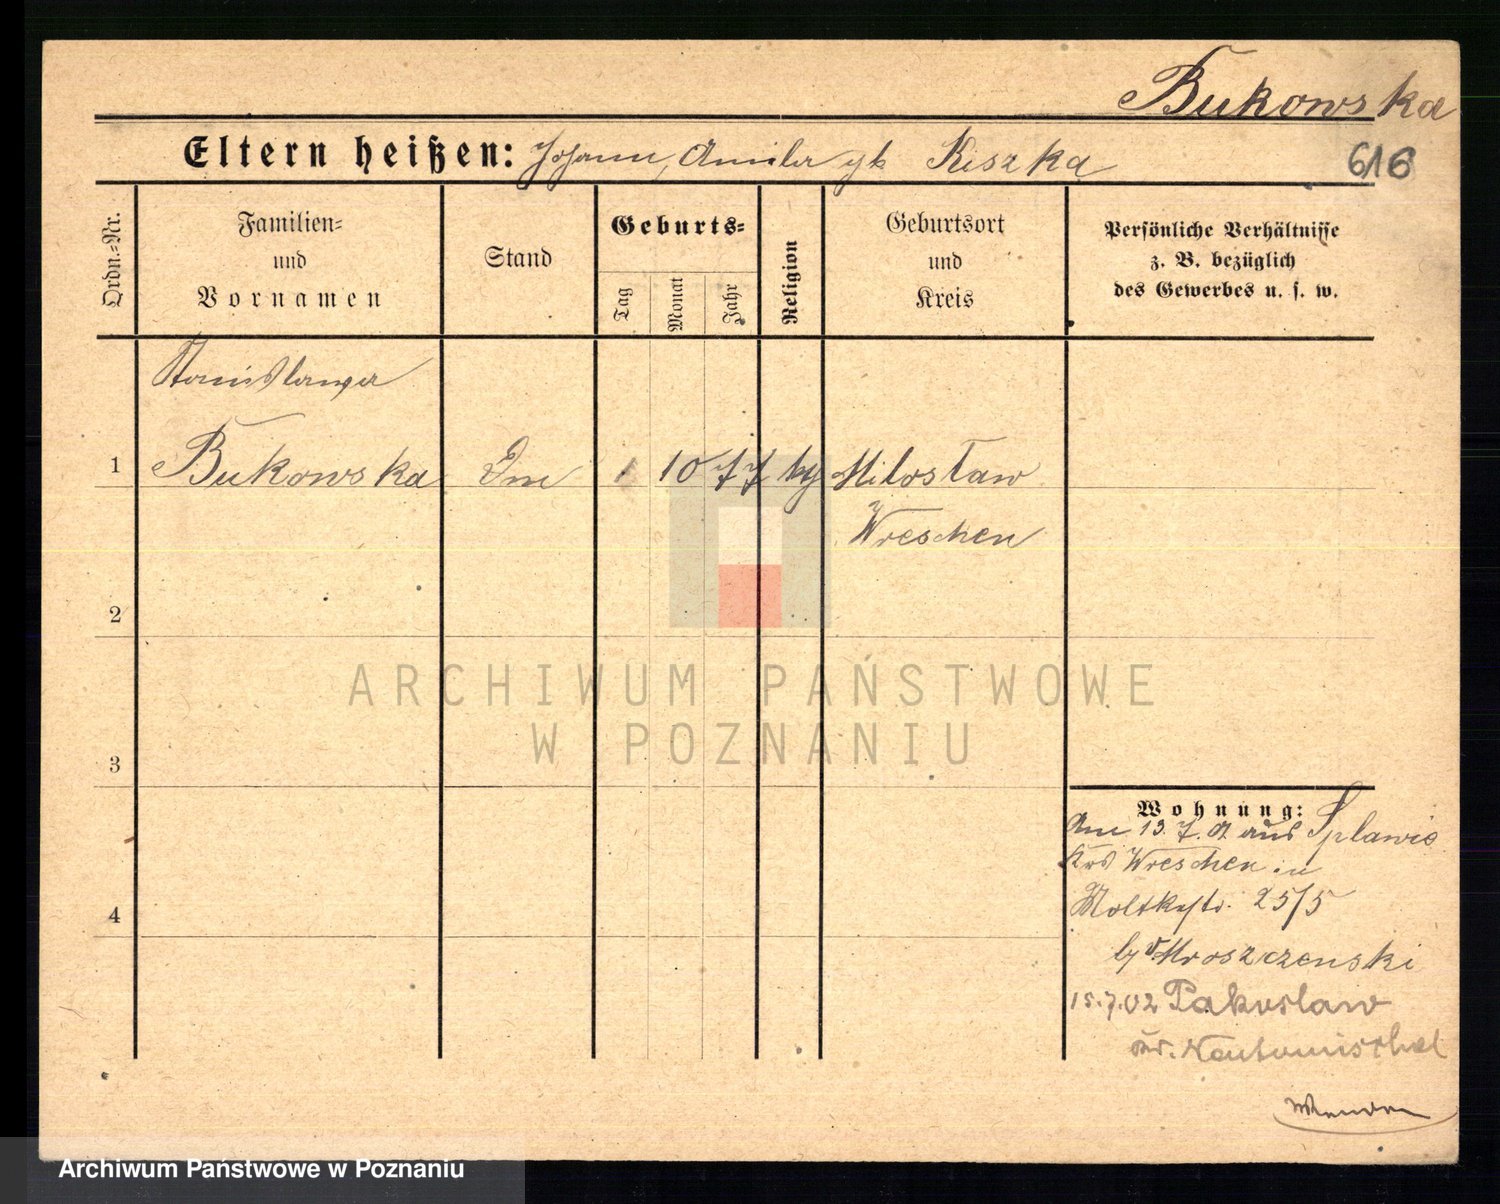 Bukowska
Eltern heißen: Johann, Amilia gb Kiszka
616
Ordn.-Nr.
Familien-
und
Vornamen
Stand
Geburts-
Tag
Monat
Jahr
Religion
Geburtsort
und
Kreis
Persönliche Verhältnisse
z. B. bezüglich
des Gewerbes u. s. w.
Stanislawa
1 Bukowska 1 10 77 Miloslaw
Wreschen
2
3
4
Wohnung:
Am 13.7. aus Splawie
Krs Wreschen in
Moltkestr. 25/5
b/ v. Mroszczenski
15.7.02 Pakoslaw
Kr. Neutomischel
ARCHIWUM PAŃSTWOWE
W POZNANIU
Archiwum Państwowe w Poznaniu